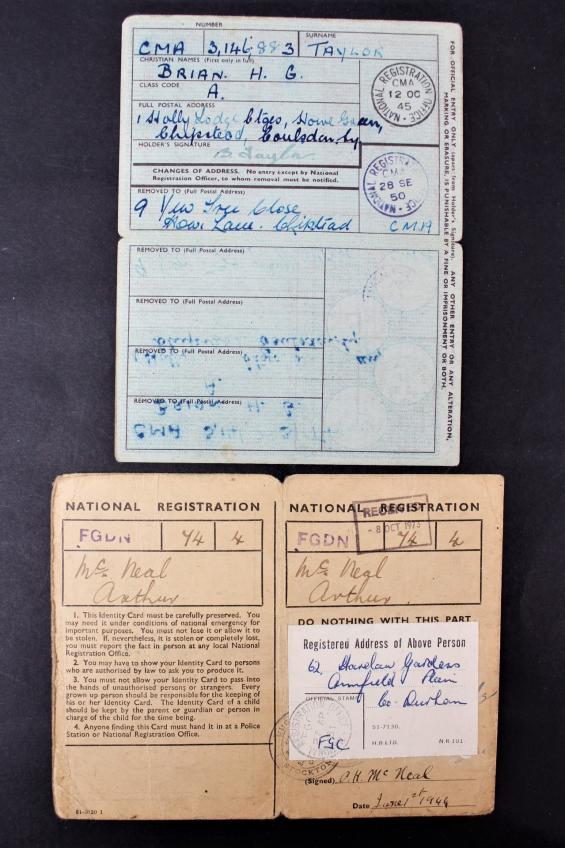 NUMBER SURNAME
CMA 3,146,883 TAYLOR
CHRISTIAN NAMES (First only in full)
BRIAN. H. G.
CLASS CODE
A.
FULL POSTAL ADDRESS
1 Holly Lodge Howe Green,
Chipstead, Coulsdon,
HOLDER'S SIGNATURE
B Taylor
CHANGES OF ADDRESS. No entry except by National
Registration Officer, to whom removal must be notified.
REMOVED TO (Full Postal Address)
9 Yew Tree Close
Lane. Chipstead
CMA
NATIONAL REGISTRATION OFFICE
CMA
12 OC
45
NATIONAL REGISTRATION OFFICE
CMA
28 SE
50
FOR OFFICIAL ENTRY ONLY (apart from Holder's Signature). ANY OTHER ENTRY OR ANY ALTERATION,
MARKING OR ERASURE, IS PUNISHABLE BY A FINE OR IMPRISONMENT OR BOTH.
REMOVED TO (Full Postal Address)
REMOVED TO (Full Postal Address)
REMOVED TO (Full Postal Address)
REMOVED TO (Full Postal Address)
NATIONAL REGISTRATION
FGDN 74 4
Mc Neal
Arthur
1. This Identity Card must be carefully preserved. You
may need it under conditions of national emergency for
important purposes. You must not lose it or allow it to
be stolen. If, nevertheless, it is stolen or completely lost,
you must report the fact in person at any local National
Registration Office.
2. You may have to show your Identity Card to persons
who are authorised by law to ask you to produce it.
3. You must not allow your Identity Card to pass into
the hands of unauthorised persons or strangers. Every
grown up person should be responsible for the keeping of
his or her Identity Card. The Identity Card of a child
should be kept by the parent or guardian or person in
charge of the child for the time being.
4. Anyone finding this Card must hand it in at a Police
Station or National Registration Office.
NATIONAL REGISTRATION
RECEIVED
-8 OCT 1973
FGDN 74 4
Mc Neal
Arthur
DO NOTHING WITH THIS PART
Registered Address of Above Person
62, Gardens
Annfield Plain
Co. Durham
OFFICIAL STAMP
FGC
51-7130.
H.B.LTD. N.R.101.
STOCKTON
(Signed) A. Mc Neal
Date June 1st 1944